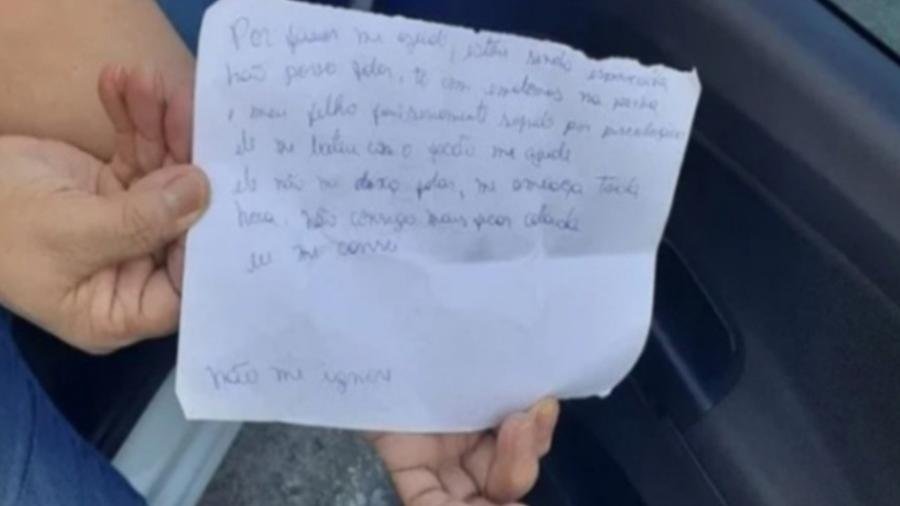 Por favor me ajude, estou sendo espancada
não posso falar, to com hematomas na perna
e meu filho
ele me bateu com o facão me ajude
ele não me deixa falar, me ameaça toda
hora. não consigo mais ficar calada
eu me cansei
não me ignore